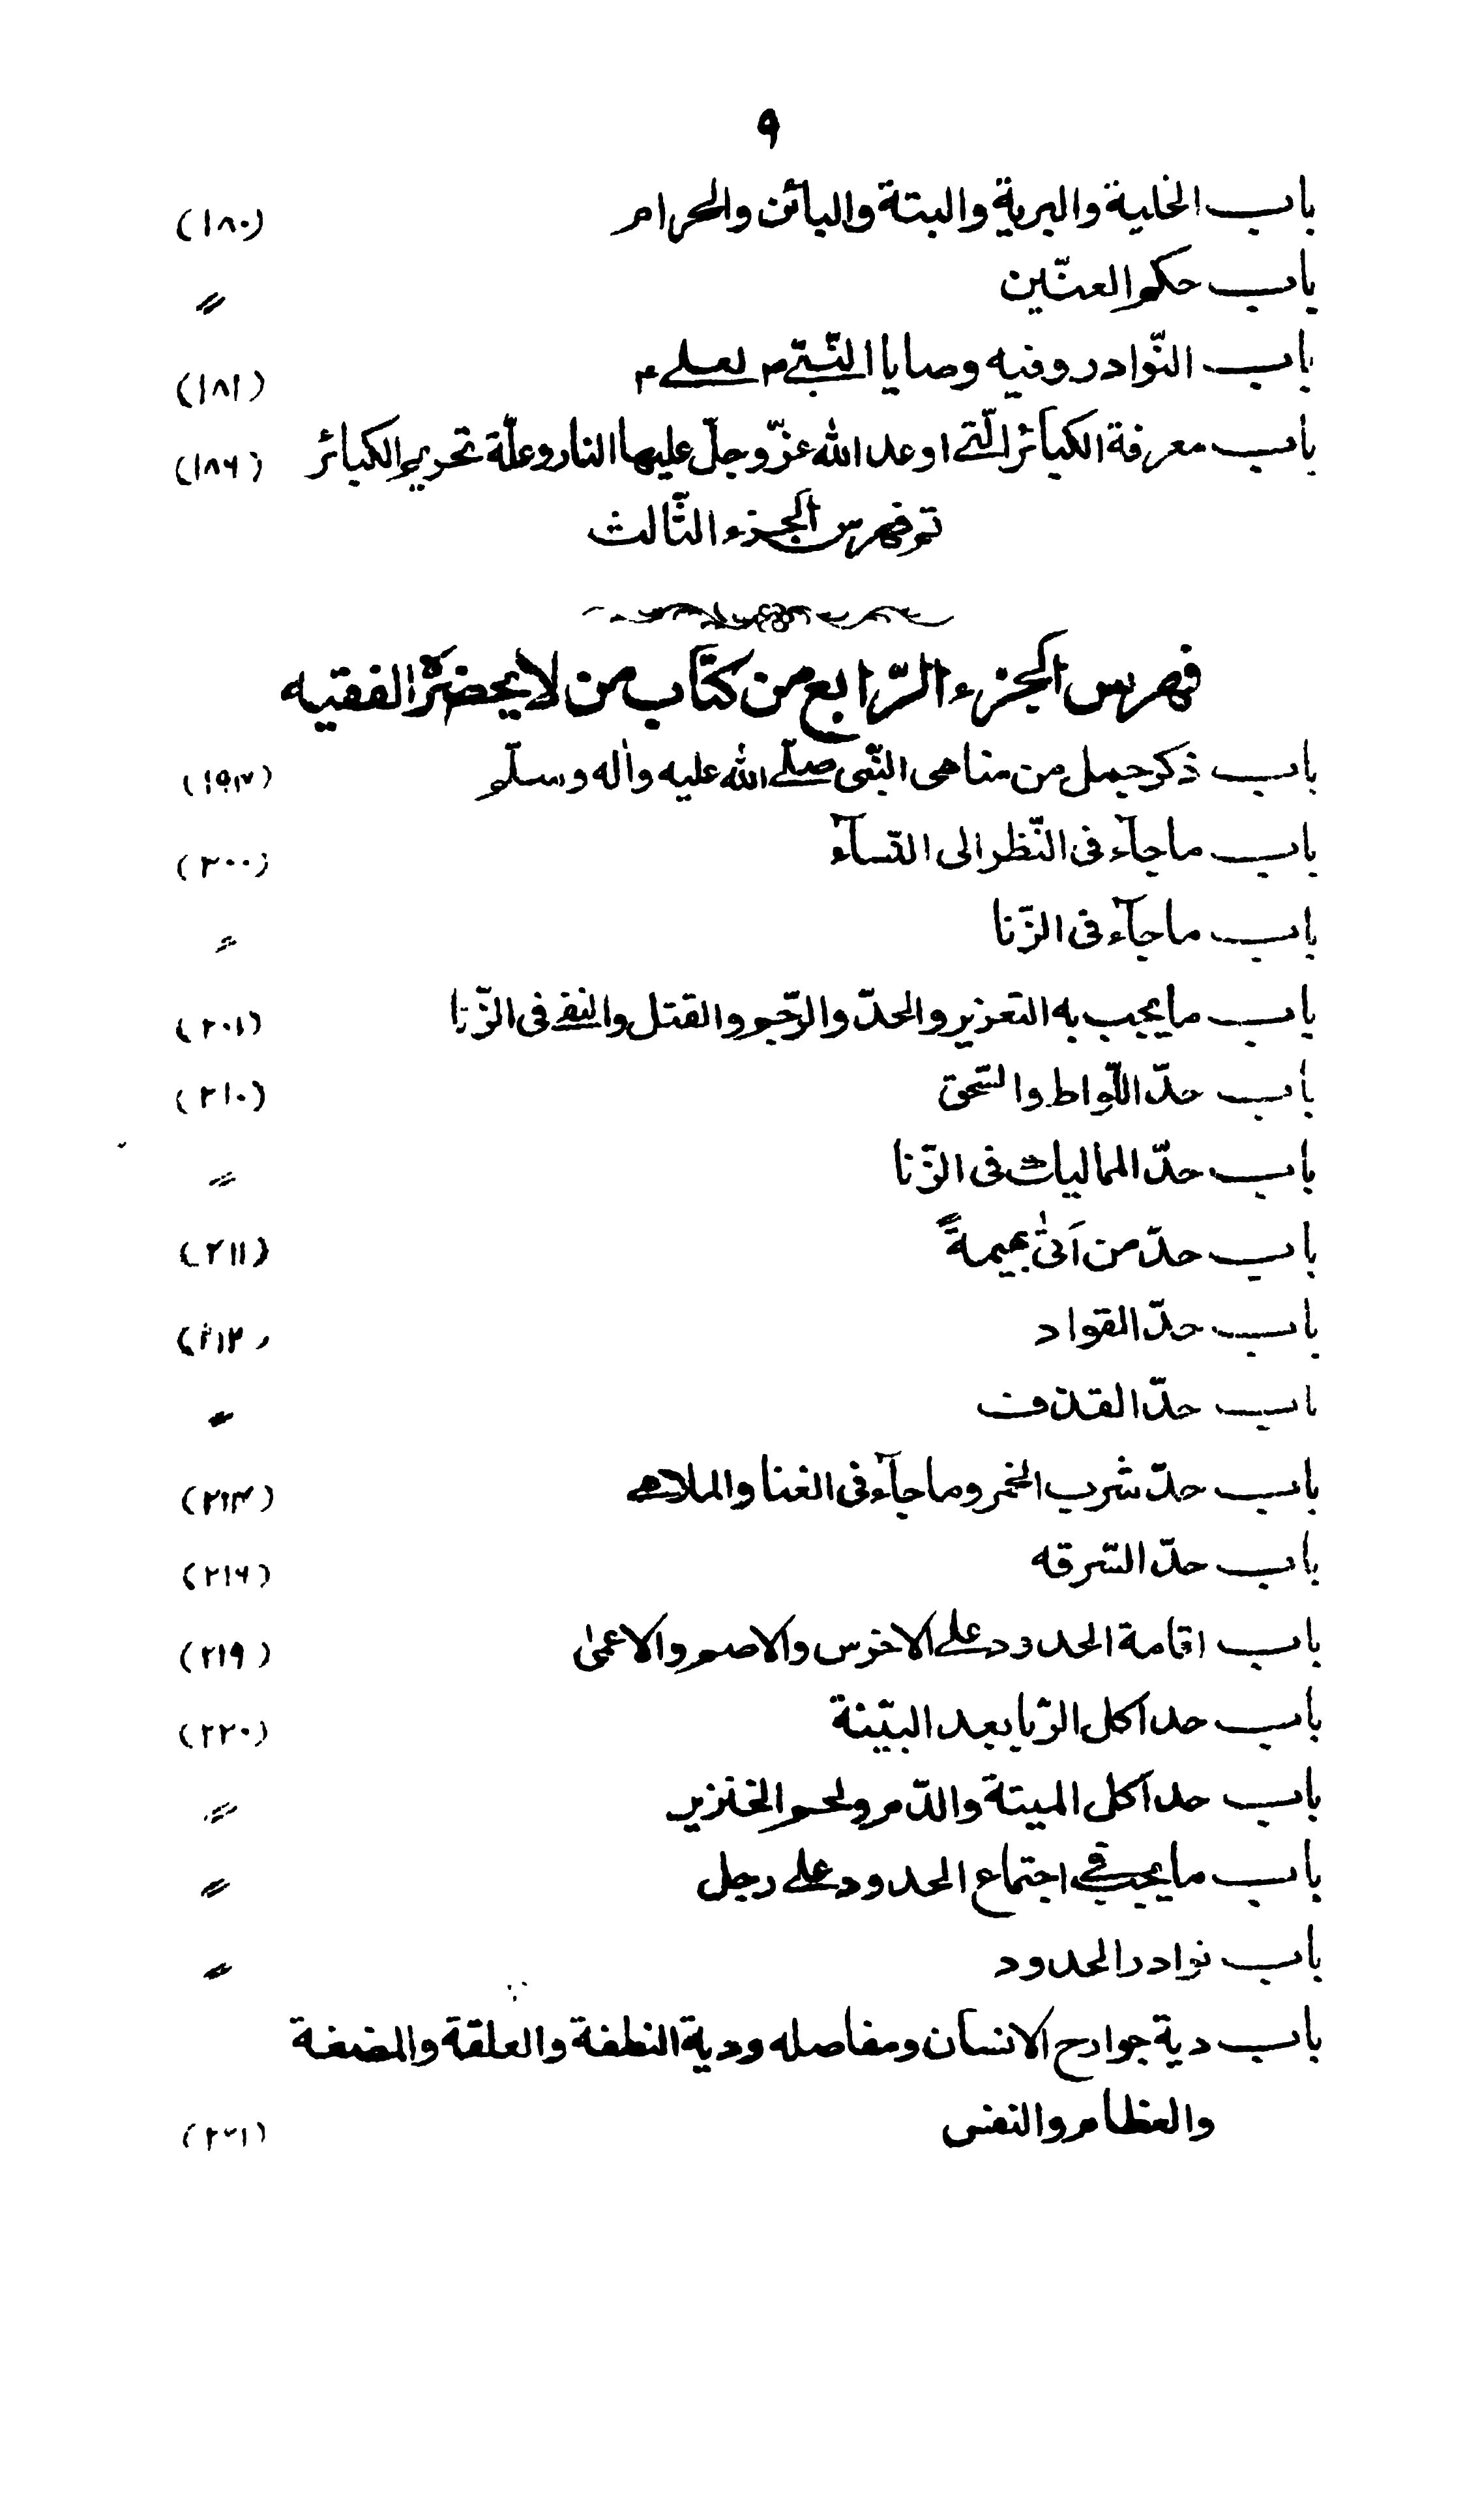 ٩
باب الخلية والبرية والبتة والبائن والحرام (١٨٠)
باب حكم العنّين 〃
باب النّوادر وفيه وصايا النّبيّ م لعلي م (١٨١)
باب معرفة الكبائر الّتي اوعد الله عزّ وجلّ عليها النار وعلّة تحريم الكبائر (١٨٦)
تم فهرس الجزء الثّالث
فهرس الجزء الرّابع من كتاب من لا يحضرهُ الفقيه
باب ذكر جمل من مناهى النّبى صلّى الله عليه واٰله وسلّم
باب ما جآء فى النّظر الى النّسآء (٢٠٠)
باب ما جآء فى الزّنا 〃
باب ما يجب به التعزير والحدّ والرّجم والقتل والنفى فى الزّنا (٢٠١)
باب حدّ اللّواط والسّحق (٢١٠)
باب حدّ المماليك فى الزّنا 〃
باب حدّ من اَتىٰ بهيمةً (٢١١)
باب حدّ القواد
باب حدّ القذف 〃
باب حدّ شرب الخمر وما جآء فى الغنا والملاهي (٢١٣)
باب حدّ السّرقه (٢١٦)
باب اقامة الحدود على الاخرس والاصم والاعمىٰ (٢١٩)
باب حد اكل الرّبا بعد البيّنة (٢٢٠)
باب حد اكل الميتة والدّم ولحم الخنزير 〃
باب ما يجب في اجتماع الحدود على رجل 〃
باب نوادر الحدود 〃
باب دية جوارح الانسان ومفاصله ودية النطفة والعلقة والمضغة
والعظام والنفس (٢٢١)